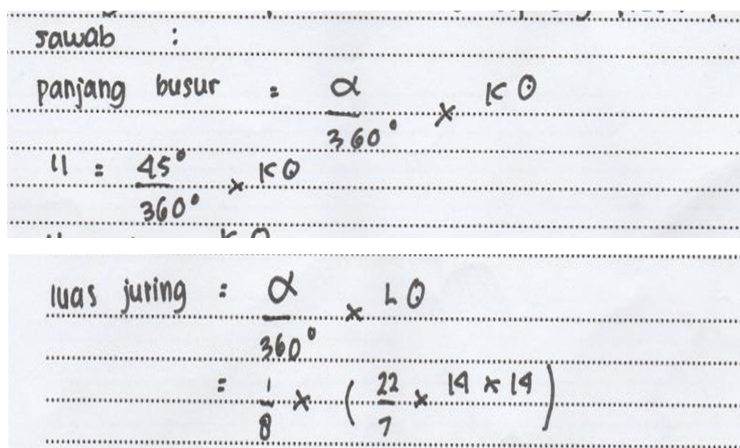 Jawab :
panjang busur = α/360° × K⊙
11 = 45°/360° × K⊙
luas juring = α/360° × L⊙
= 1/8 × (22/7 × 14 × 14)